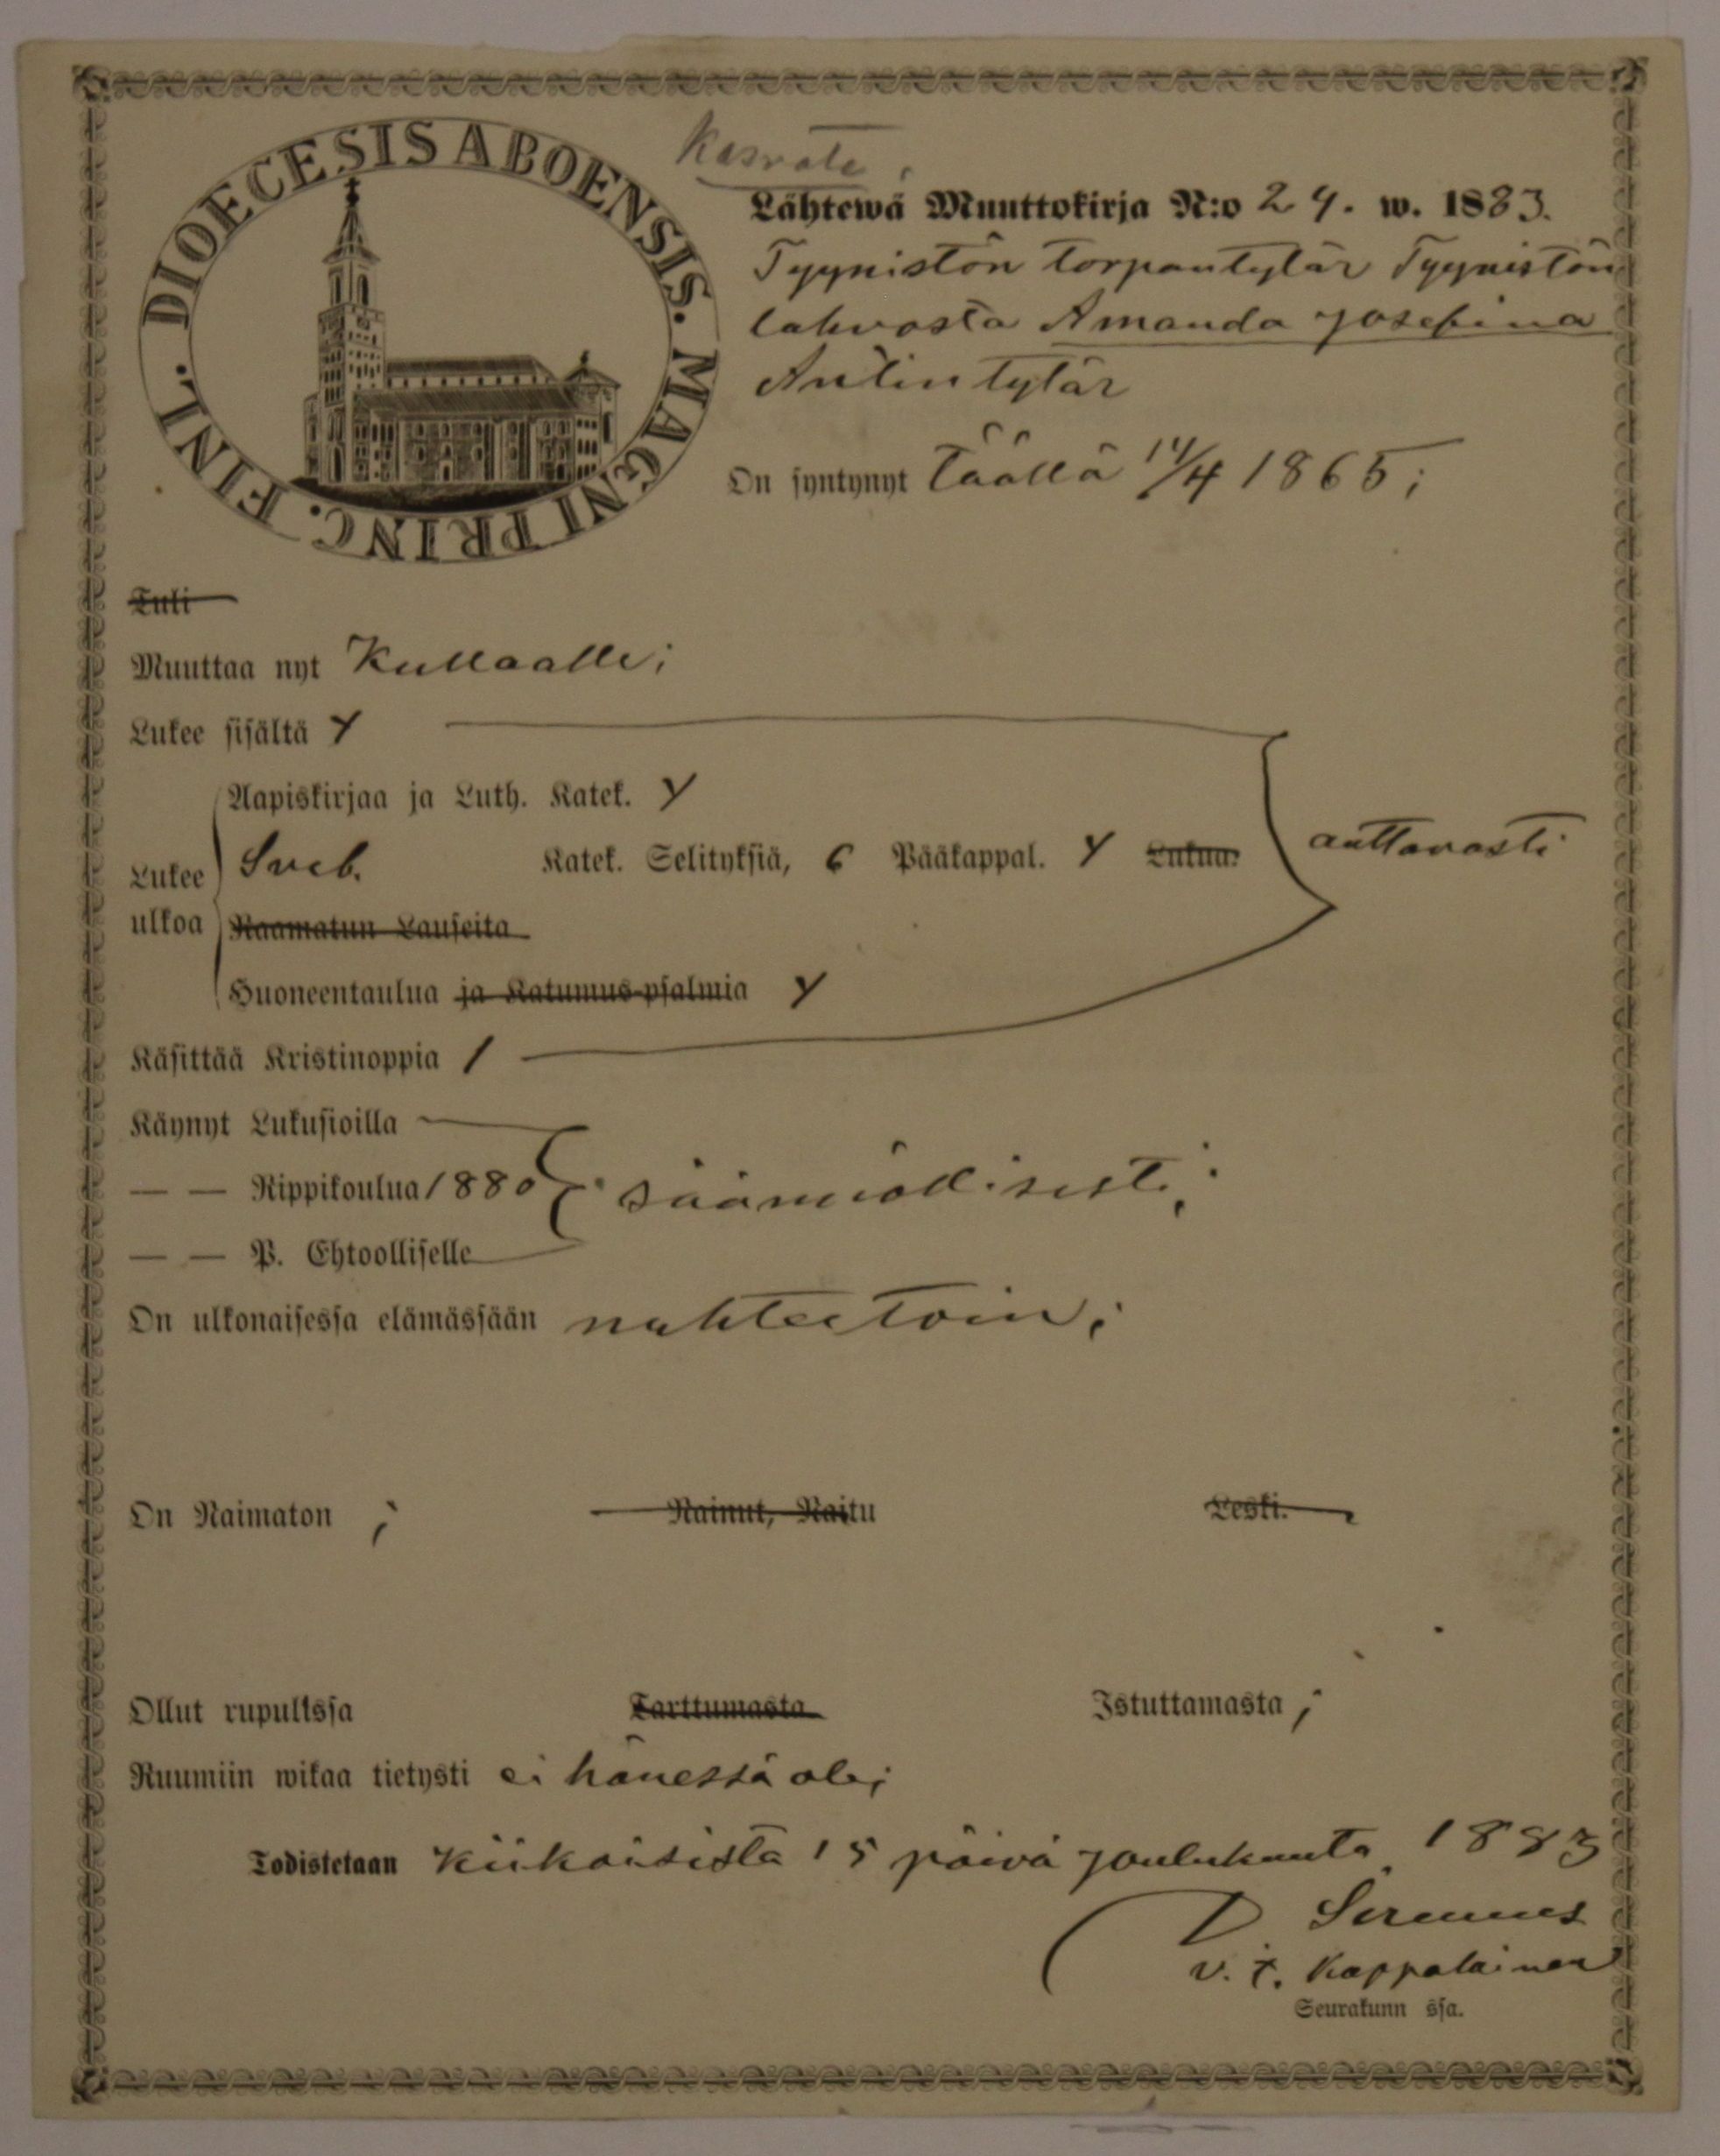 DIOECESIS ABOENSIS. MAGNI PRINC. FINL.
Kasvata
Lähtewä Muuttokirja N:o 24. w. 1883.
Tyynistön torpantytär Tyynistön
lahvosta Amanda Josefina
Antintytär
On syntynyt täällä 14/4 1865;
Tuli
Muuttaa nyt Kullaalle;
Lukee sisältä Y
Aapiskirjaa ja Luth. Katek. Y
Lukee ulkoa Sveb. Katek. Selityksiä, 6 Pääkappal. Y Lukua. auttavasti
Raamatun Lauseita
Huoneentaulua ja Katumus-psalmia Y
Käsittää Kristinoppia /
Käynyt Lukusioilla
— — Rippikoulua 1880 säännöllisesti;
— — P. Ehtoolliselle
On ulkonaisessa elämässään nuhteetoin;
On Naimaton ; Nainut, Naitu Leski.
Ollut rupulissa Tarttumasta Istuttamasta ;
Ruumiin wikaa tietysti ei hänessä ole;
Todistetaan Kiikoisista 15 päivä Joulukuuta 1883
D.
v. t. Kappalainen
Seurakunn ssa.